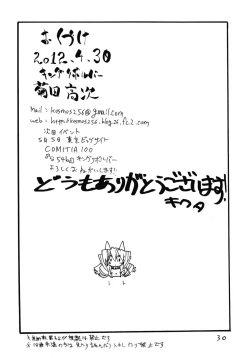 おくづけ
2012.4.30
キングリボルバー
菊田 高次
mail: kosmos256@gmail.com
web: http://kosmos256.blog26.fc2.com
次回イベント
5月5日 東京ビッグサイト
COMITIA100
キングリボルバー
よろしくおねがいします!
どうもありがとうございます!
キクタ
30